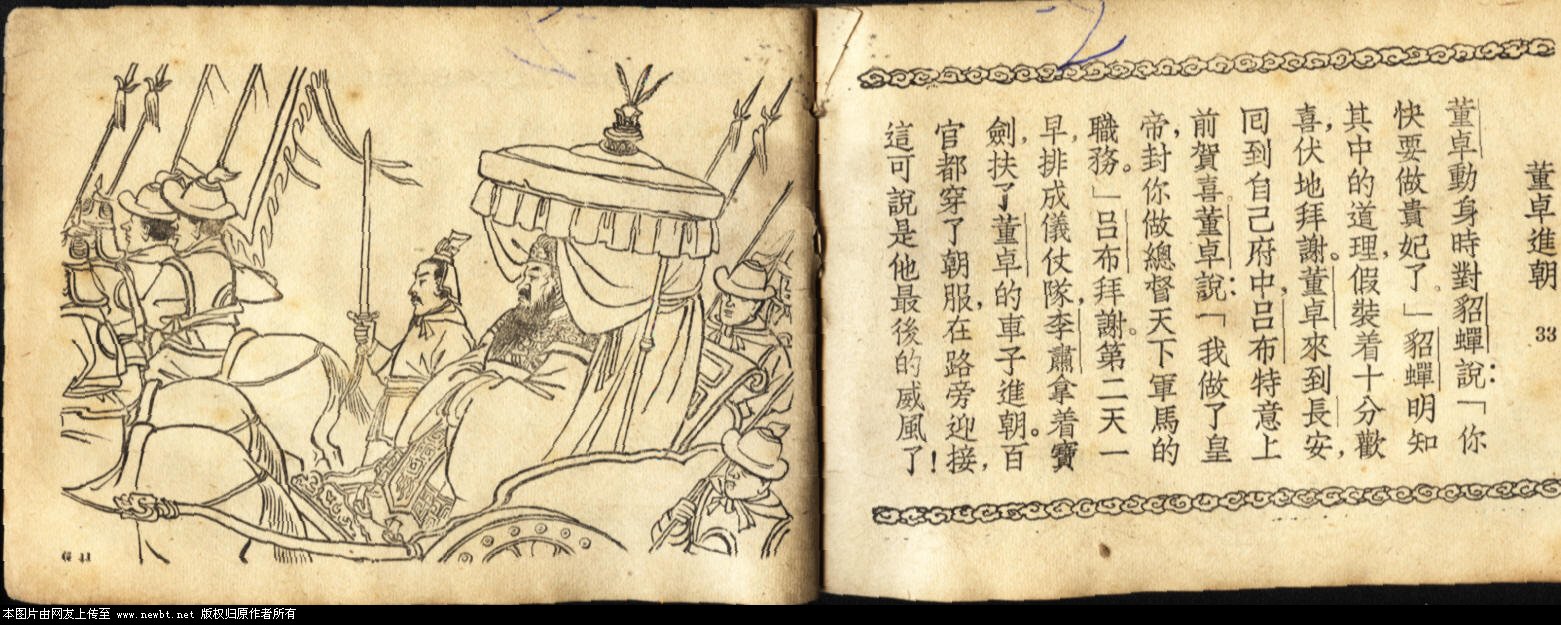 董卓進朝 33
董卓動身時對貂蟬說：「你
快要做貴妃了。」貂蟬明知
其中的道理，假裝着十分歡
喜，伏地拜謝。董卓來到長安，
囘到自己府中，呂布特意上
前賀喜。董卓說：「我做了皇
帝，封你做總督天下軍馬的
職務。」呂布拜謝。第二天一
早，排成儀仗隊，李肅拿着寶
劍，扶了董卓的車子進朝。百
官都穿了朝服，在路旁迎接，
這可說是他最後的威風了！
本图片由网友上传至 www.newbt.net 版权归原作者所有